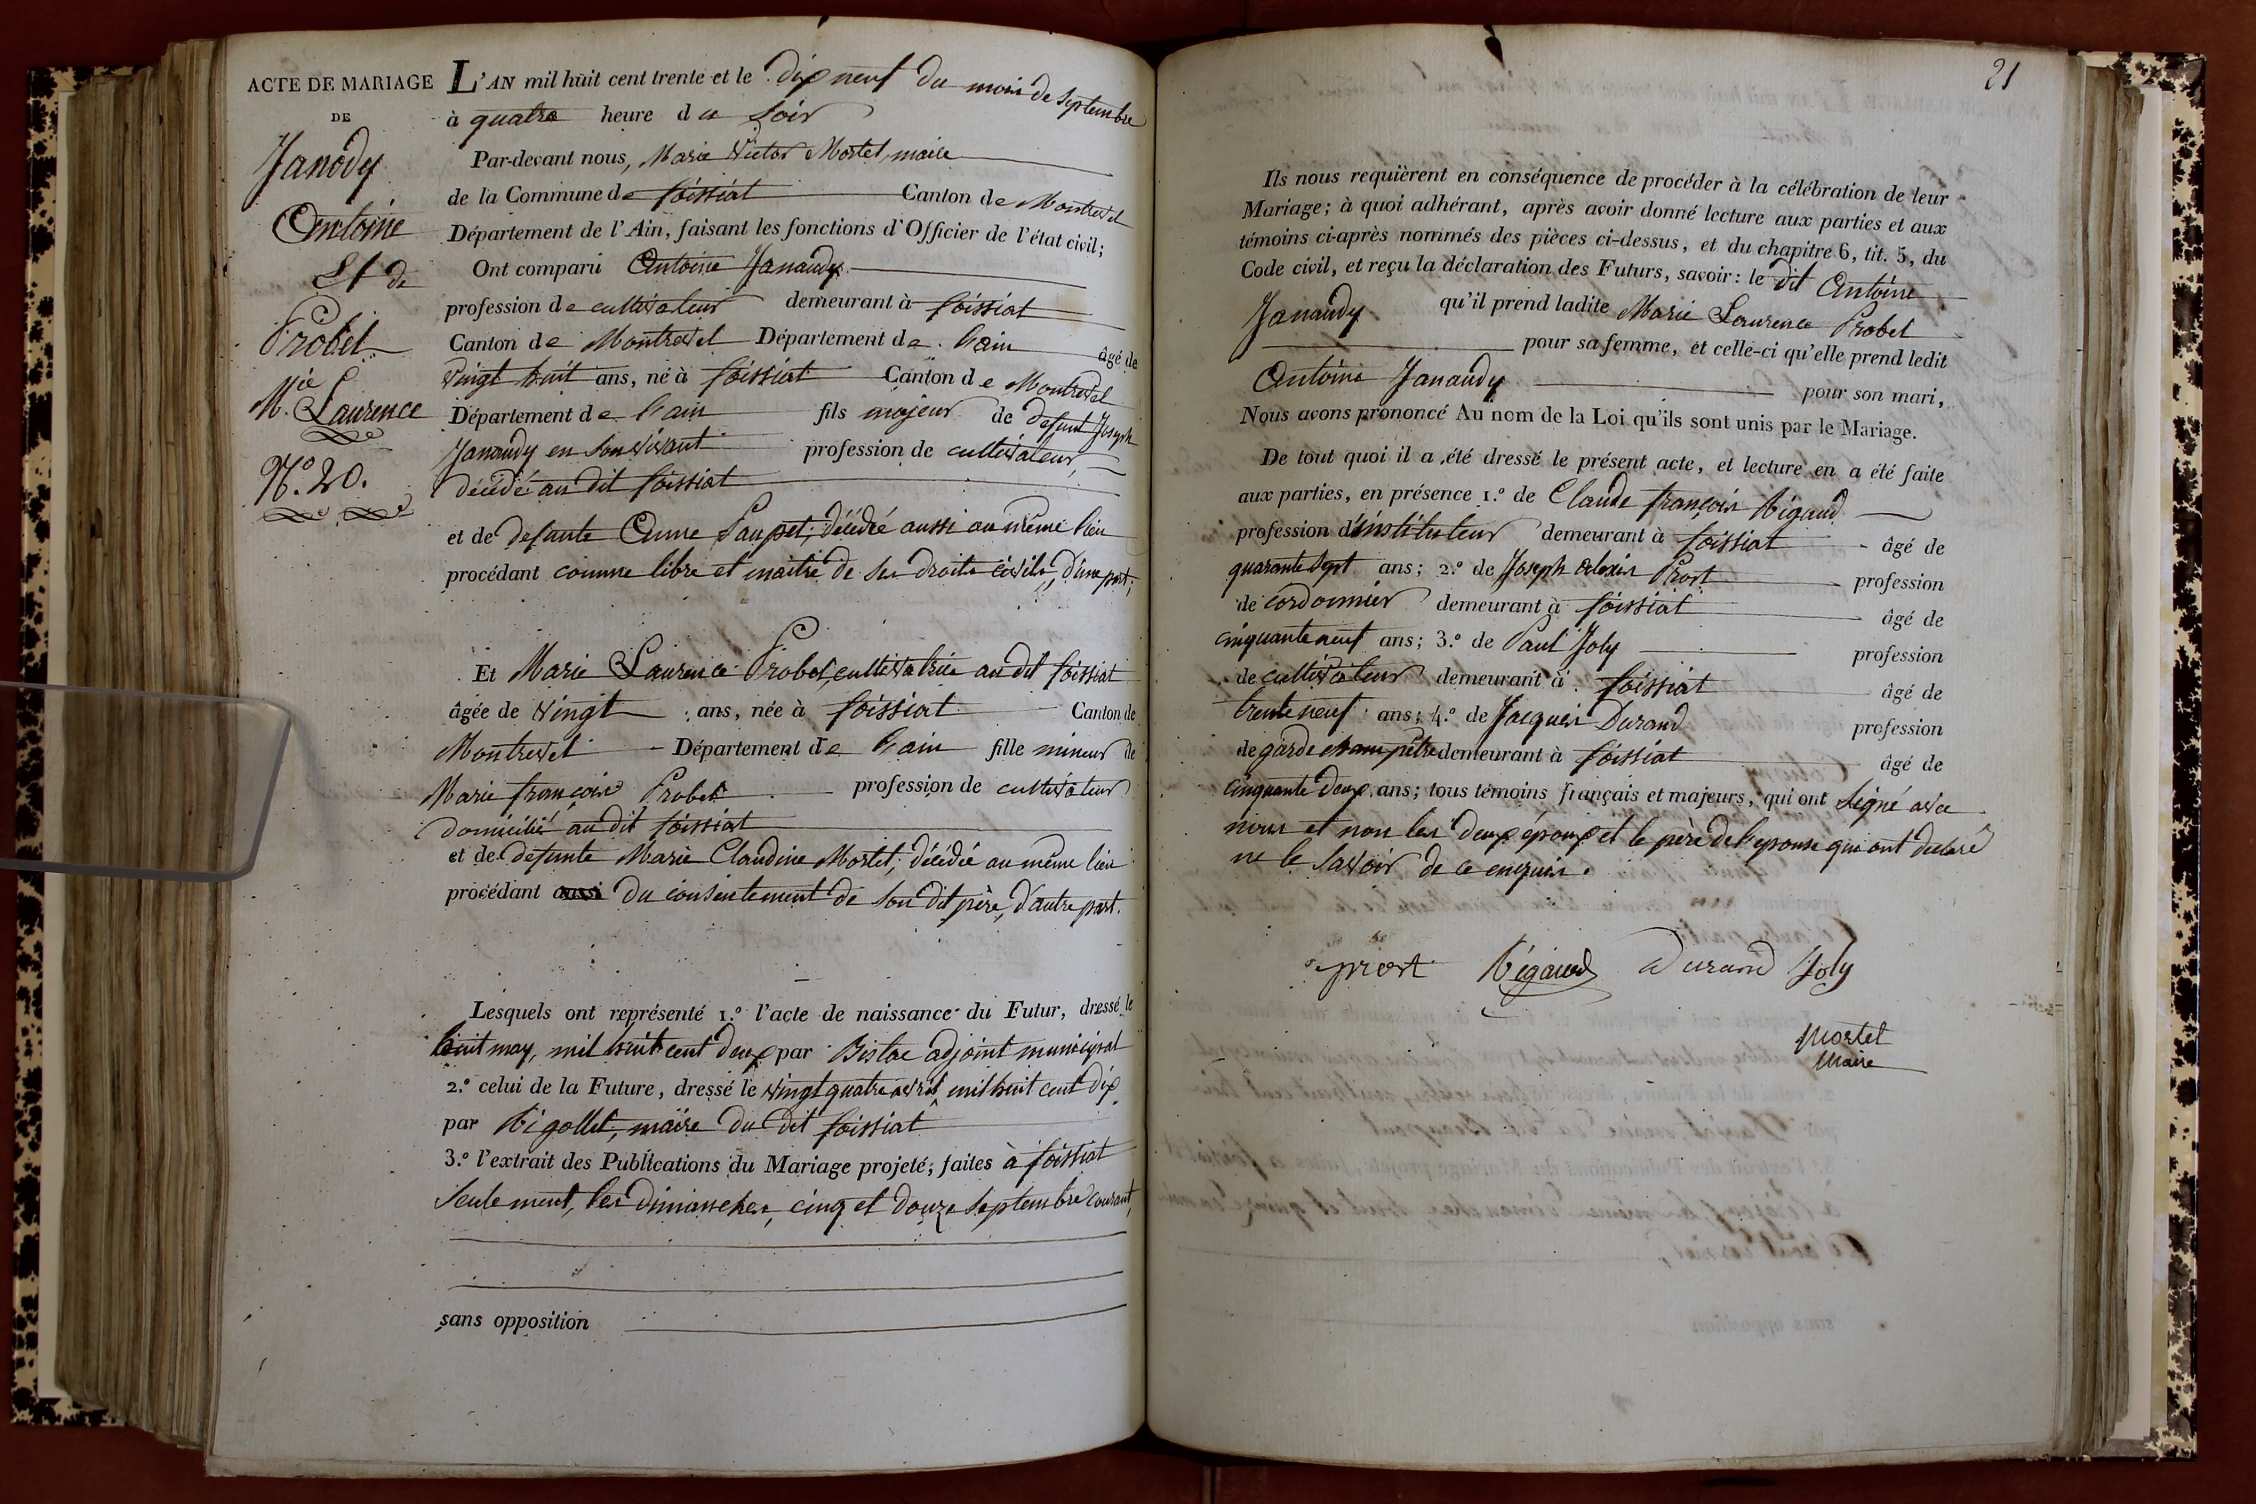 ACTE DE MARIAGE
DE
Janody
Antoine
Et de
Probet
M.ie Laurence
N.o 20.
L'AN mil huit cent trente et le dix neuf du mois de Septembre
à quatre heure du soir
Par-devant nous, Marie Victor Mortel, maire
de la Commune de foissiat Canton de Montrevel
Département de l'Ain, faisant les fonctions d'Officier de l'état civil;
Ont comparu Antoine Janaudy
profession de cultivateur demeurant à foissiat
Canton de Montrevel Département de L'ain âgé de
vingt huit ans, né à foissiat Canton de Montrevel
Département de L'ain fils majeur de defunt Joseph
Janaudy en son vivant profession de cultivateur,
décédé au dit foissiat
et de defunte Anne Paupet, décédée aussi au même lieu
procédant comme libre et maitre de ses droits civils, d'une part;
Et Marie Laurence Probet, cultivatrice au dit foissiat
âgée de vingt ans, née à foissiat Canton de
Montrevel Département de L'ain fille mineur de
Marie françois Probet profession de cultivateur
domicilié au dit foissiat
et de defunte Marie Claudine Mortel, décédée au même lieu
procédant aussi du consentement de son dit père, d'autre part.
Lesquels ont représenté 1.o l'acte de naissance du Futur, dressé le
huit may, mil huit cent deux par Bislac adjoint municipal
2.o celui de la Future, dressé le vingt quatre avril mil huit cent dix
par Rigollet, maire du dit foissiat
3.o l'extrait des Publications du Mariage projeté; faites à foissiat
seulement, les dimanches, cinq et douze septembre courant,
sans opposition
21
Ils nous requièrent en conséquence de procéder à la célébration de leur
Mariage; à quoi adhérant, après avoir donné lecture aux parties et aux
témoins ci-après nommés des pièces ci-dessus, et du chapitre 6, tit. 5, du
Code civil, et reçu la déclaration des Futurs, savoir: le dit Antoine
Janaudy qu'il prend ladite Marie Laurence Probet
pour sa femme, et celle-ci qu'elle prend ledit
Antoine Janaudy pour son mari,
Nous avons prononcé Au nom de la Loi qu'ils sont unis par le Mariage.
De tout quoi il a été dressé le présent acte, et lecture en a été faite
aux parties, en présence 1.o de Claude françois Rigaud
profession d'instituteur demeurant à foissiat âgé de
quarante sept ans; 2.o de Joseph alexis Prost profession
de cordonnier demeurant à foissiat âgé de
cinquante neuf ans; 3.o de Paul Joly profession
de cultivateur demeurant à foissiat âgé de
trente neuf ans; 4.o de Jacques Durand profession
de garde champêtre demeurant à foissiat âgé de
cinquante deux ans; tous témoins français et majeurs, qui ont signé avec
nous et non les deux époux et le père de l'epouse qui ont declaré
ne le savoir de ce enquis.
prost Rigaud Durand Joly
Mortel
Maire